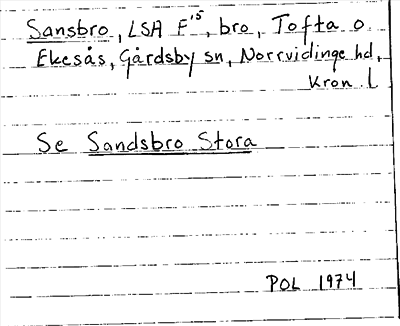 Sansbro, LSA F¹⁵, bro, Tofta o
Ekesås, Gårdsby sn, Norrvidinge hd,
Kron. l
Se Sandsbro Stora
POL 1974